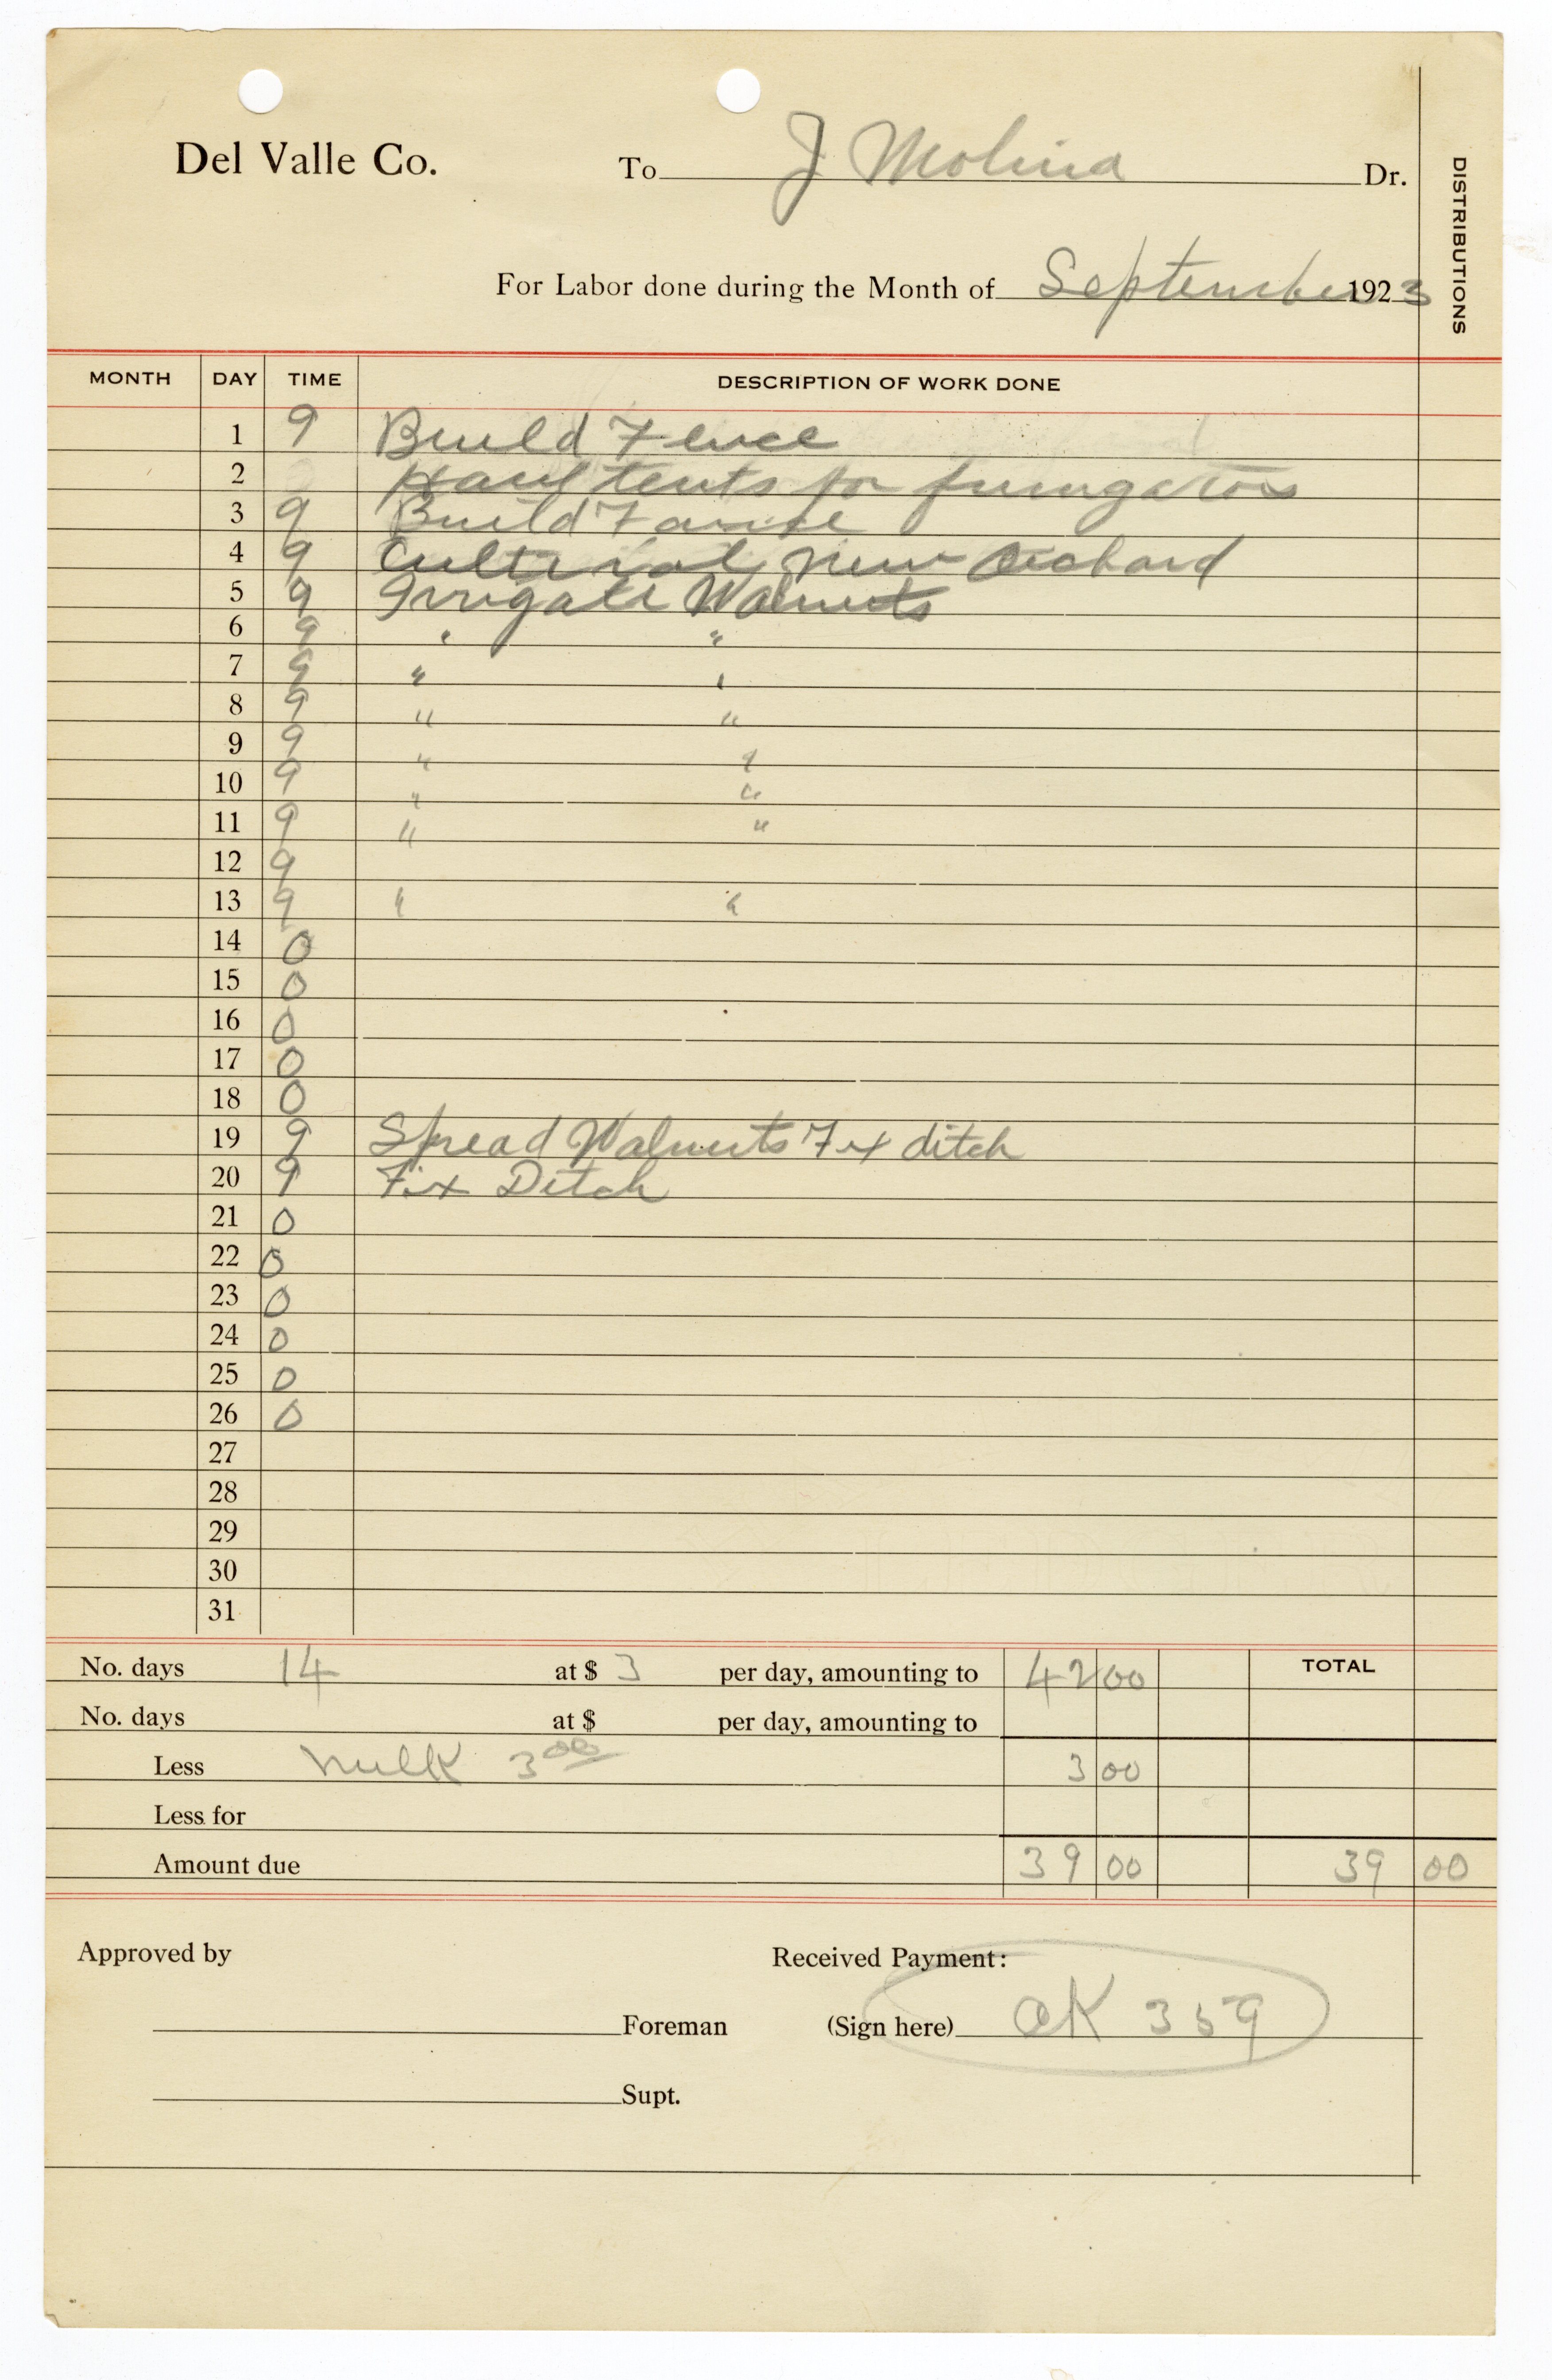 Del Valle Co. To J Molina Dr.
DISTRIBUTIONS
For Labor done during the Month of September 1923
MONTH DAY TIME DESCRIPTION OF WORK DONE
1 9 Build Fence
2 Haul tents for fumigators
3 9 Build
4 9 new Orchard
5 9 Irrigate Walnuts
6 9 " "
7 9 " "
8 9 " "
9 9 " "
10 9 " "
11 9 " "
12 9
13 9 " "
14 0
15 0
16 0
17 0
18 0
19 9 Spread Walnuts Fix ditch
20 9 Fix Ditch
21 0
22 0
23 0
24 0
25 0
26 0
27
28
29
30
31
No. days 14 at $ 3 per day, amounting to 42 00 TOTAL
No. days at $ per day, amounting to
Less Milk 3 00 3 00
Less for
Amount due 39 00 39 00
Approved by Received Payment:
Foreman (Sign here) OK 359
Supt.